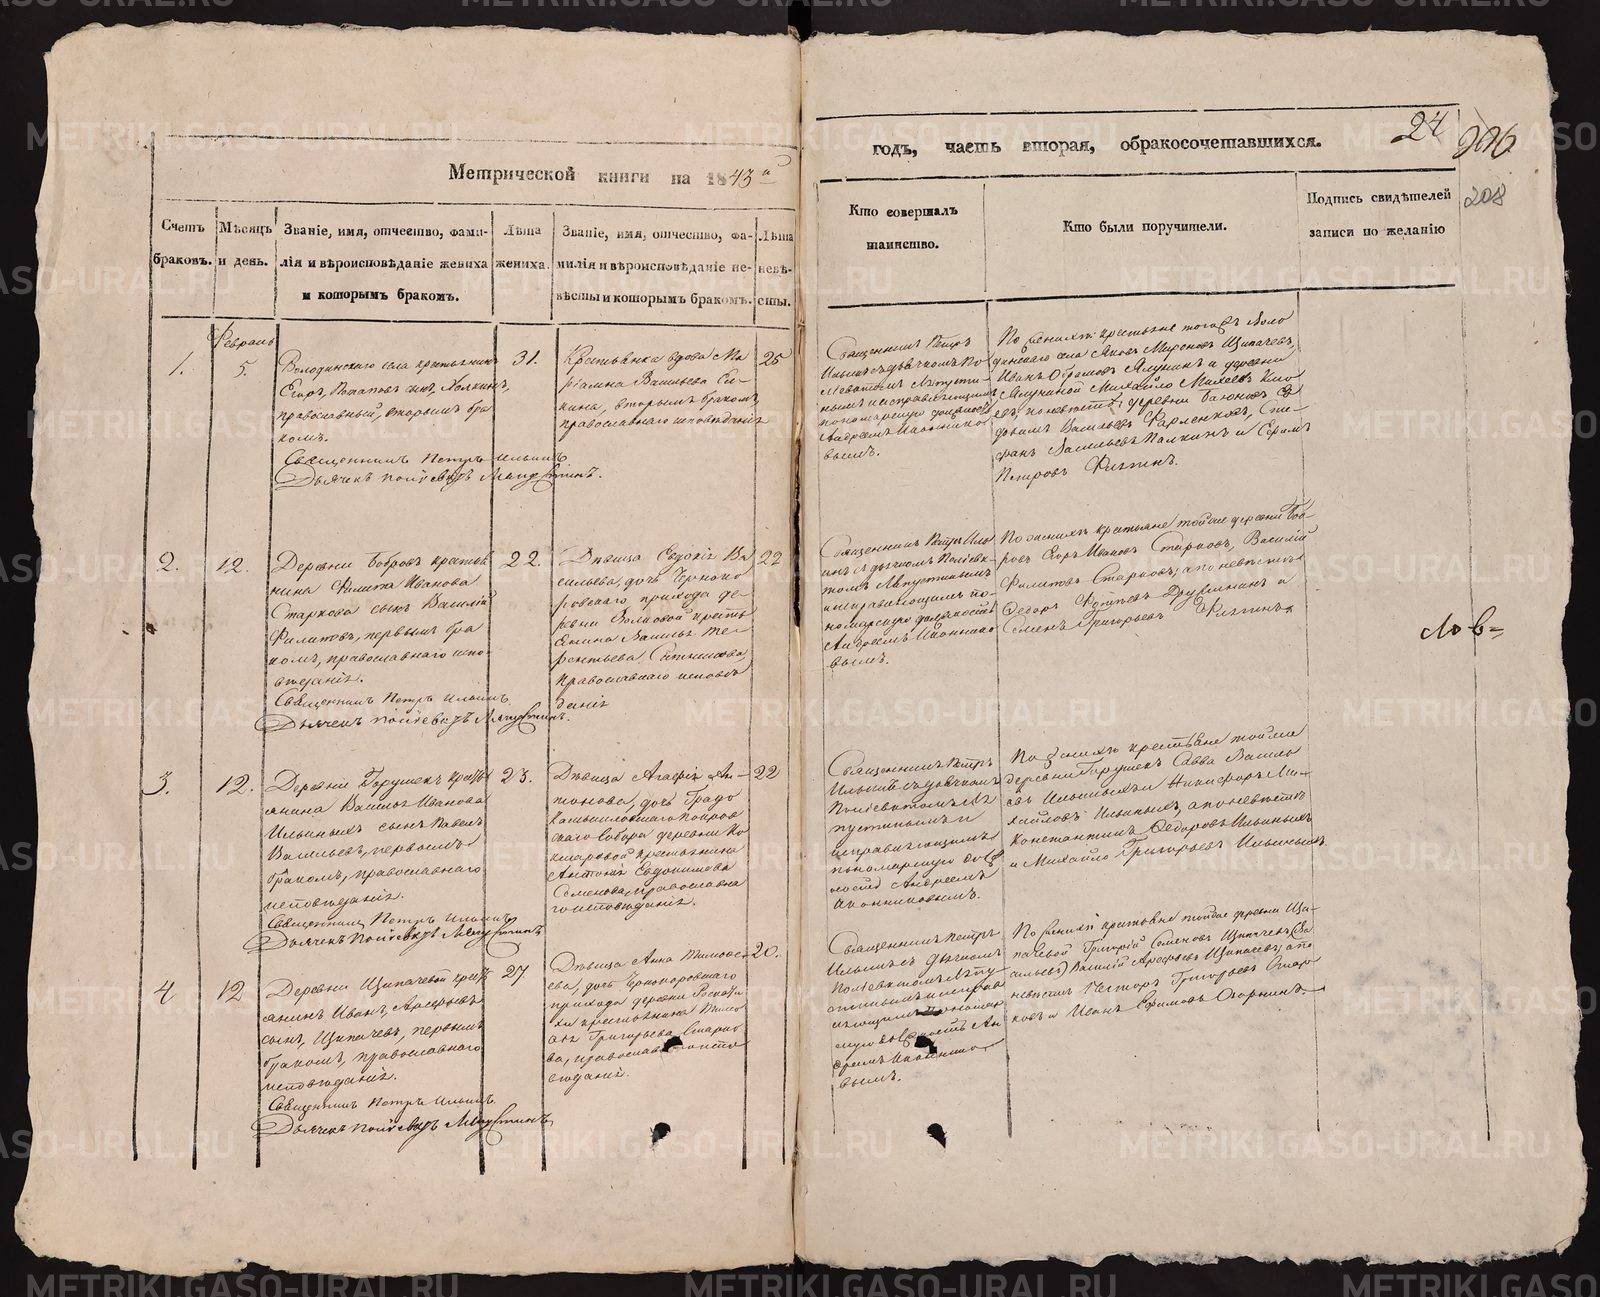 Метрической книги на 1843й
годъ, часть вторая, обракосочетавшихся.
24
206
208
Счетъ браковъ.
Мѣсяцъ и день.
Званіе, имя, отчество, фами-
лія и вѣроисповѣданіе жениха
и которымъ бракомъ.
Лѣта
жениха.
Званіе, имя, отчество, фа-
милія и вѣроисповѣданіе не-
вѣсты и которымъ бракомъ.
Лѣта
невѣ-
сты.
Кто совершалъ
таинство.
Кто были поручители.
Подпись свидѣтелей
записи по желанію
1.
Февраль
5.
Володинскаго села крестьянинъ
Егоръ Потаповъ сынъ,
православный, вторымъ бра
комъ.
Священникъ Петръ Ильинъ
31.
Крестьянка вдова Ма
Васильева
кина, вторымъ бракомъ,
православнаго исповѣданія
25
Священникъ Петръ
Ильинъ съ дьячкомъ По
и исправляющимъ
пономарскую должность
Андреемъ Иконнико
вымъ.
По женихѣ крестьяне тогожъ Воло
динскаго села Яковъ Мироновъ Щипачевъ,
Иванъ и деревни
Михайло Михеевъ
по невѣстѣ деревни
Васильевъ
Васильевъ Палкинъ и Ефимъ
Петровъ
2.
12.
Деревни Бобровъ крестья
нина Филипа Иванова
Старкова сынъ Василій
Филиповъ, первымъ бра
комъ, православнаго испо
вѣданія.
Священникъ Петръ Ильинъ
22.
Дѣвица Евдокія Ва
сильева, дочь Черноко
ровскаго прихода де
ревни крестья
янина Василья Те
рентьева
православнаго исповѣ
данія
22
Священникъ Петръ Иль
инъ съ дьячкомъ Поліевк
томъ Августинымъ
и исправляющимъ по-
номарскую должность
Андреемъ Иконнико
вымъ.
По женихѣ крестьяне тойже деревни Боб-
ровъ Егоръ Ивановъ Старковъ, Василій
Филиповъ Старковъ; а по невѣстѣ
Федоръ Дружининъ и
Семенъ Григорьевъ
3.
12.
Деревни Горушекъ крестья
янина Василья Иванова
Ильиныхъ сынъ Павелъ
Васильевъ, первымъ
бракомъ, православнаго
исповѣданія.
Священникъ Петръ Ильинъ
23.
Дѣвица Агафія Ан-
тонова, дочь Градо
Камышловскаго Покров
скаго Собора деревни Ко
шаровой крестьянина
Антона Евдокимова
Семенова, православна
го исповѣданія.
22
Священникъ Петръ
Ильинъ съ дьячкомъ
Поліевктомъ Ав
густинымъ и
исправляющимъ
пономарскую долж
ность Андреемъ
Иконниковымъ.
По женихѣ крестьяне тойже
деревни Горушекъ Савва Василь
евъ Ильиныхъ и Никифоръ Ми-
хайловъ Ильиныхъ, а по невѣстѣ
Константинъ Федоровъ Ильиныхъ
и Михайло Григорьевъ Ильиныхъ.
4
12
Деревни Щипачевой крестья
янинъ Иванъ Арефьевъ
сынъ, Щипачевъ, первымъ
бракомъ, православнаго
исповѣданія.
Священникъ Петръ Ильинъ
27
Дѣвица Анна Тимофе-
ева, дочь Чернокоровскаго
прихода деревни
хи крестьянина Тимо
фея Григорьева Старко
ва, православнаго испо
вѣданія.
20.
Священникъ Петръ
Ильинъ съ дьячкомъ
Поліевктомъ Авгу
стинымъ и исправ
ляющимъ пономар
скую должность Ан
дреемъ Иконнико
вымъ.
По женихѣ крестьяне тойже деревни Щи-
пачевой Григорій Семеновъ Щипачевъ
Василій Арефьевъ Щипачевъ; а по
невѣстѣ Несторъ Григорьевъ Стар
ковъ и Иванъ Ефимовъ
METRIKI.GASO-URAL.RU